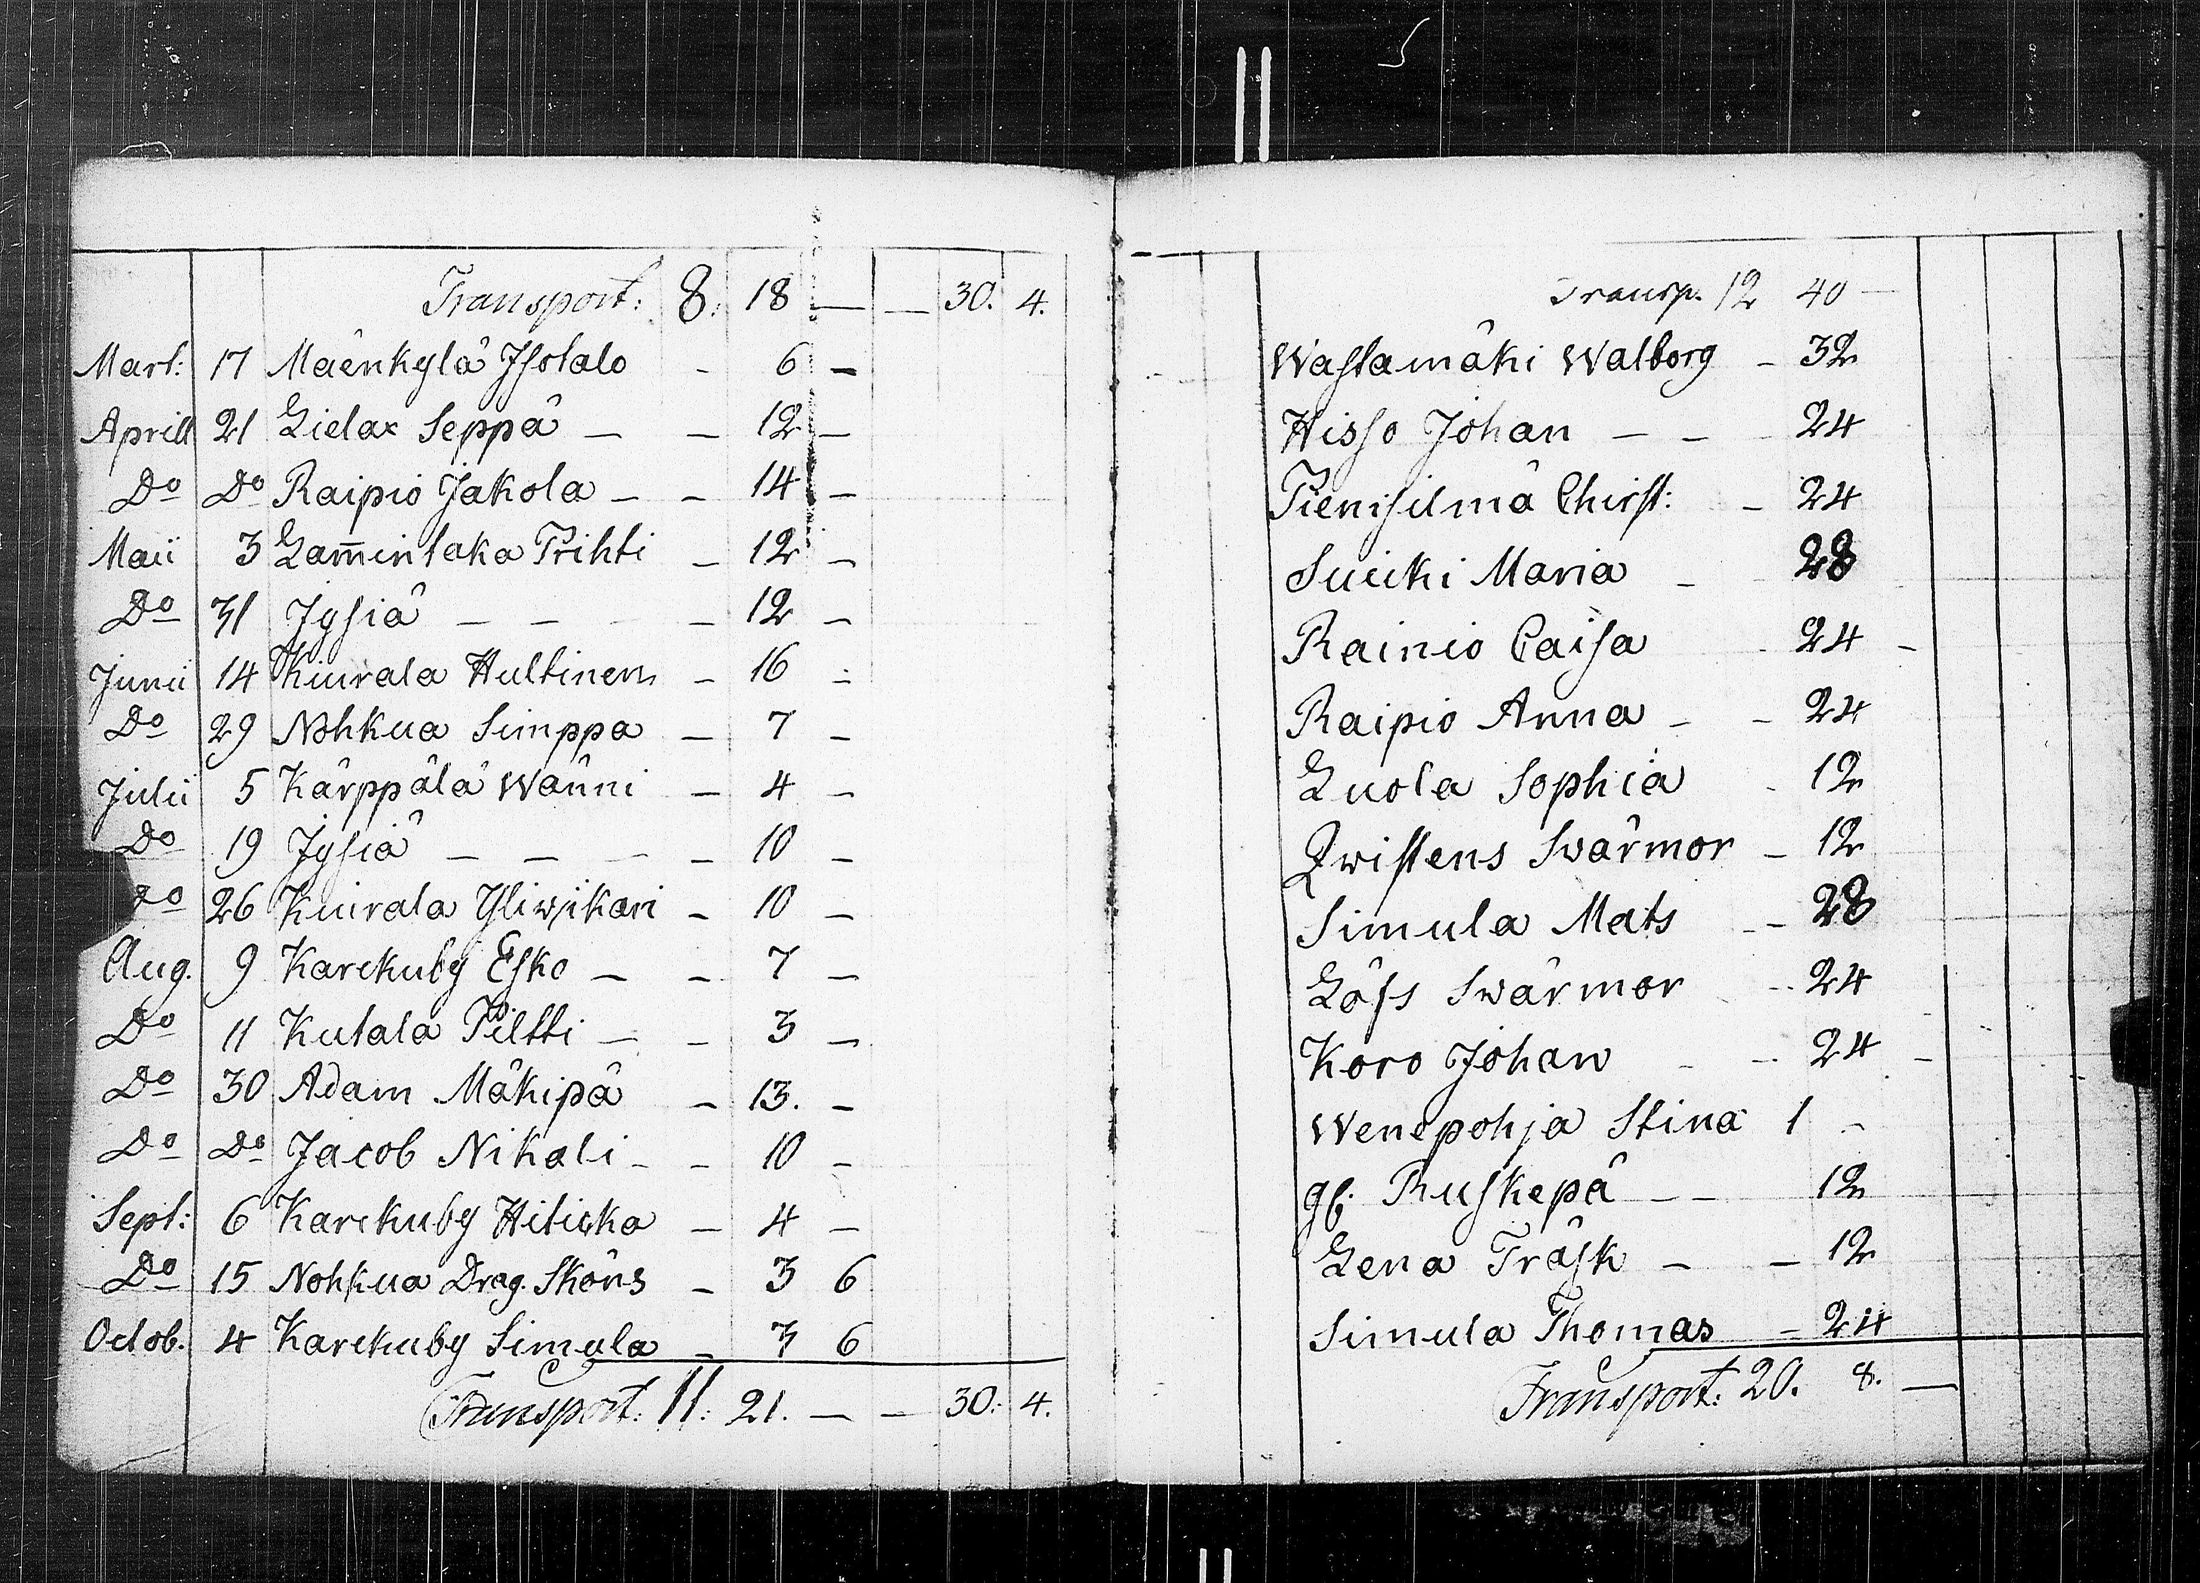 Transport: 8. 18 — — 30. 4.
Mart: 17 Mäenkylä Isotalo - 6 -
Aprill 21 Lielax Seppä - - 12 -
Do Do Raipio Jakola - - 14 -
Maii 3 Lam̅intaka Prihti - 12 -
Do 31 Jysiä - - - - 12 -
Junii 14 Kiurala Hultinen - 16 -
Do 29 Nohkua Simppa - 7 -
Julii 5 Kärppälä Wänni - 4 -
Do 19 Jysiä - - - - 10 -
Do 26 Kiurala Yliwikari - 10 -
Aug. 9 Karckuby Esko - - 7 -
Do 11 Kutala Piltti - - 3 -
Do 30 Adam Mäkipä - 13. -
Do Do Jacob Nikali - - 10 -
Sept: 6 Karckuby Hilicka - 4 -
Do 15 Nohkua Drag. Sköns - 3 6
Octob. 4 Karckuby Simula - 3 6
Transport: 11: 21. — — 30: 4.
Transp. 12 40 —
Wastamäki Walborg - 32
Hisso Johan - - - 24
Pienisilmä Christ: - 24
Suicki Maria - 28
Rainio Caisa - 24 -
Raipio Anna - - 24
Luola Sophia - 12
Qwistens Swärmor - 12
Simula Mats - 28
Löfs Swärmor - 24
Koro Johan - 24 -
Wenepohja Stina 1 -
gl. Ruskepä - - 12
Lena Träsk - - 12
Simula Thomas - 24
Transport: 20. 8. —